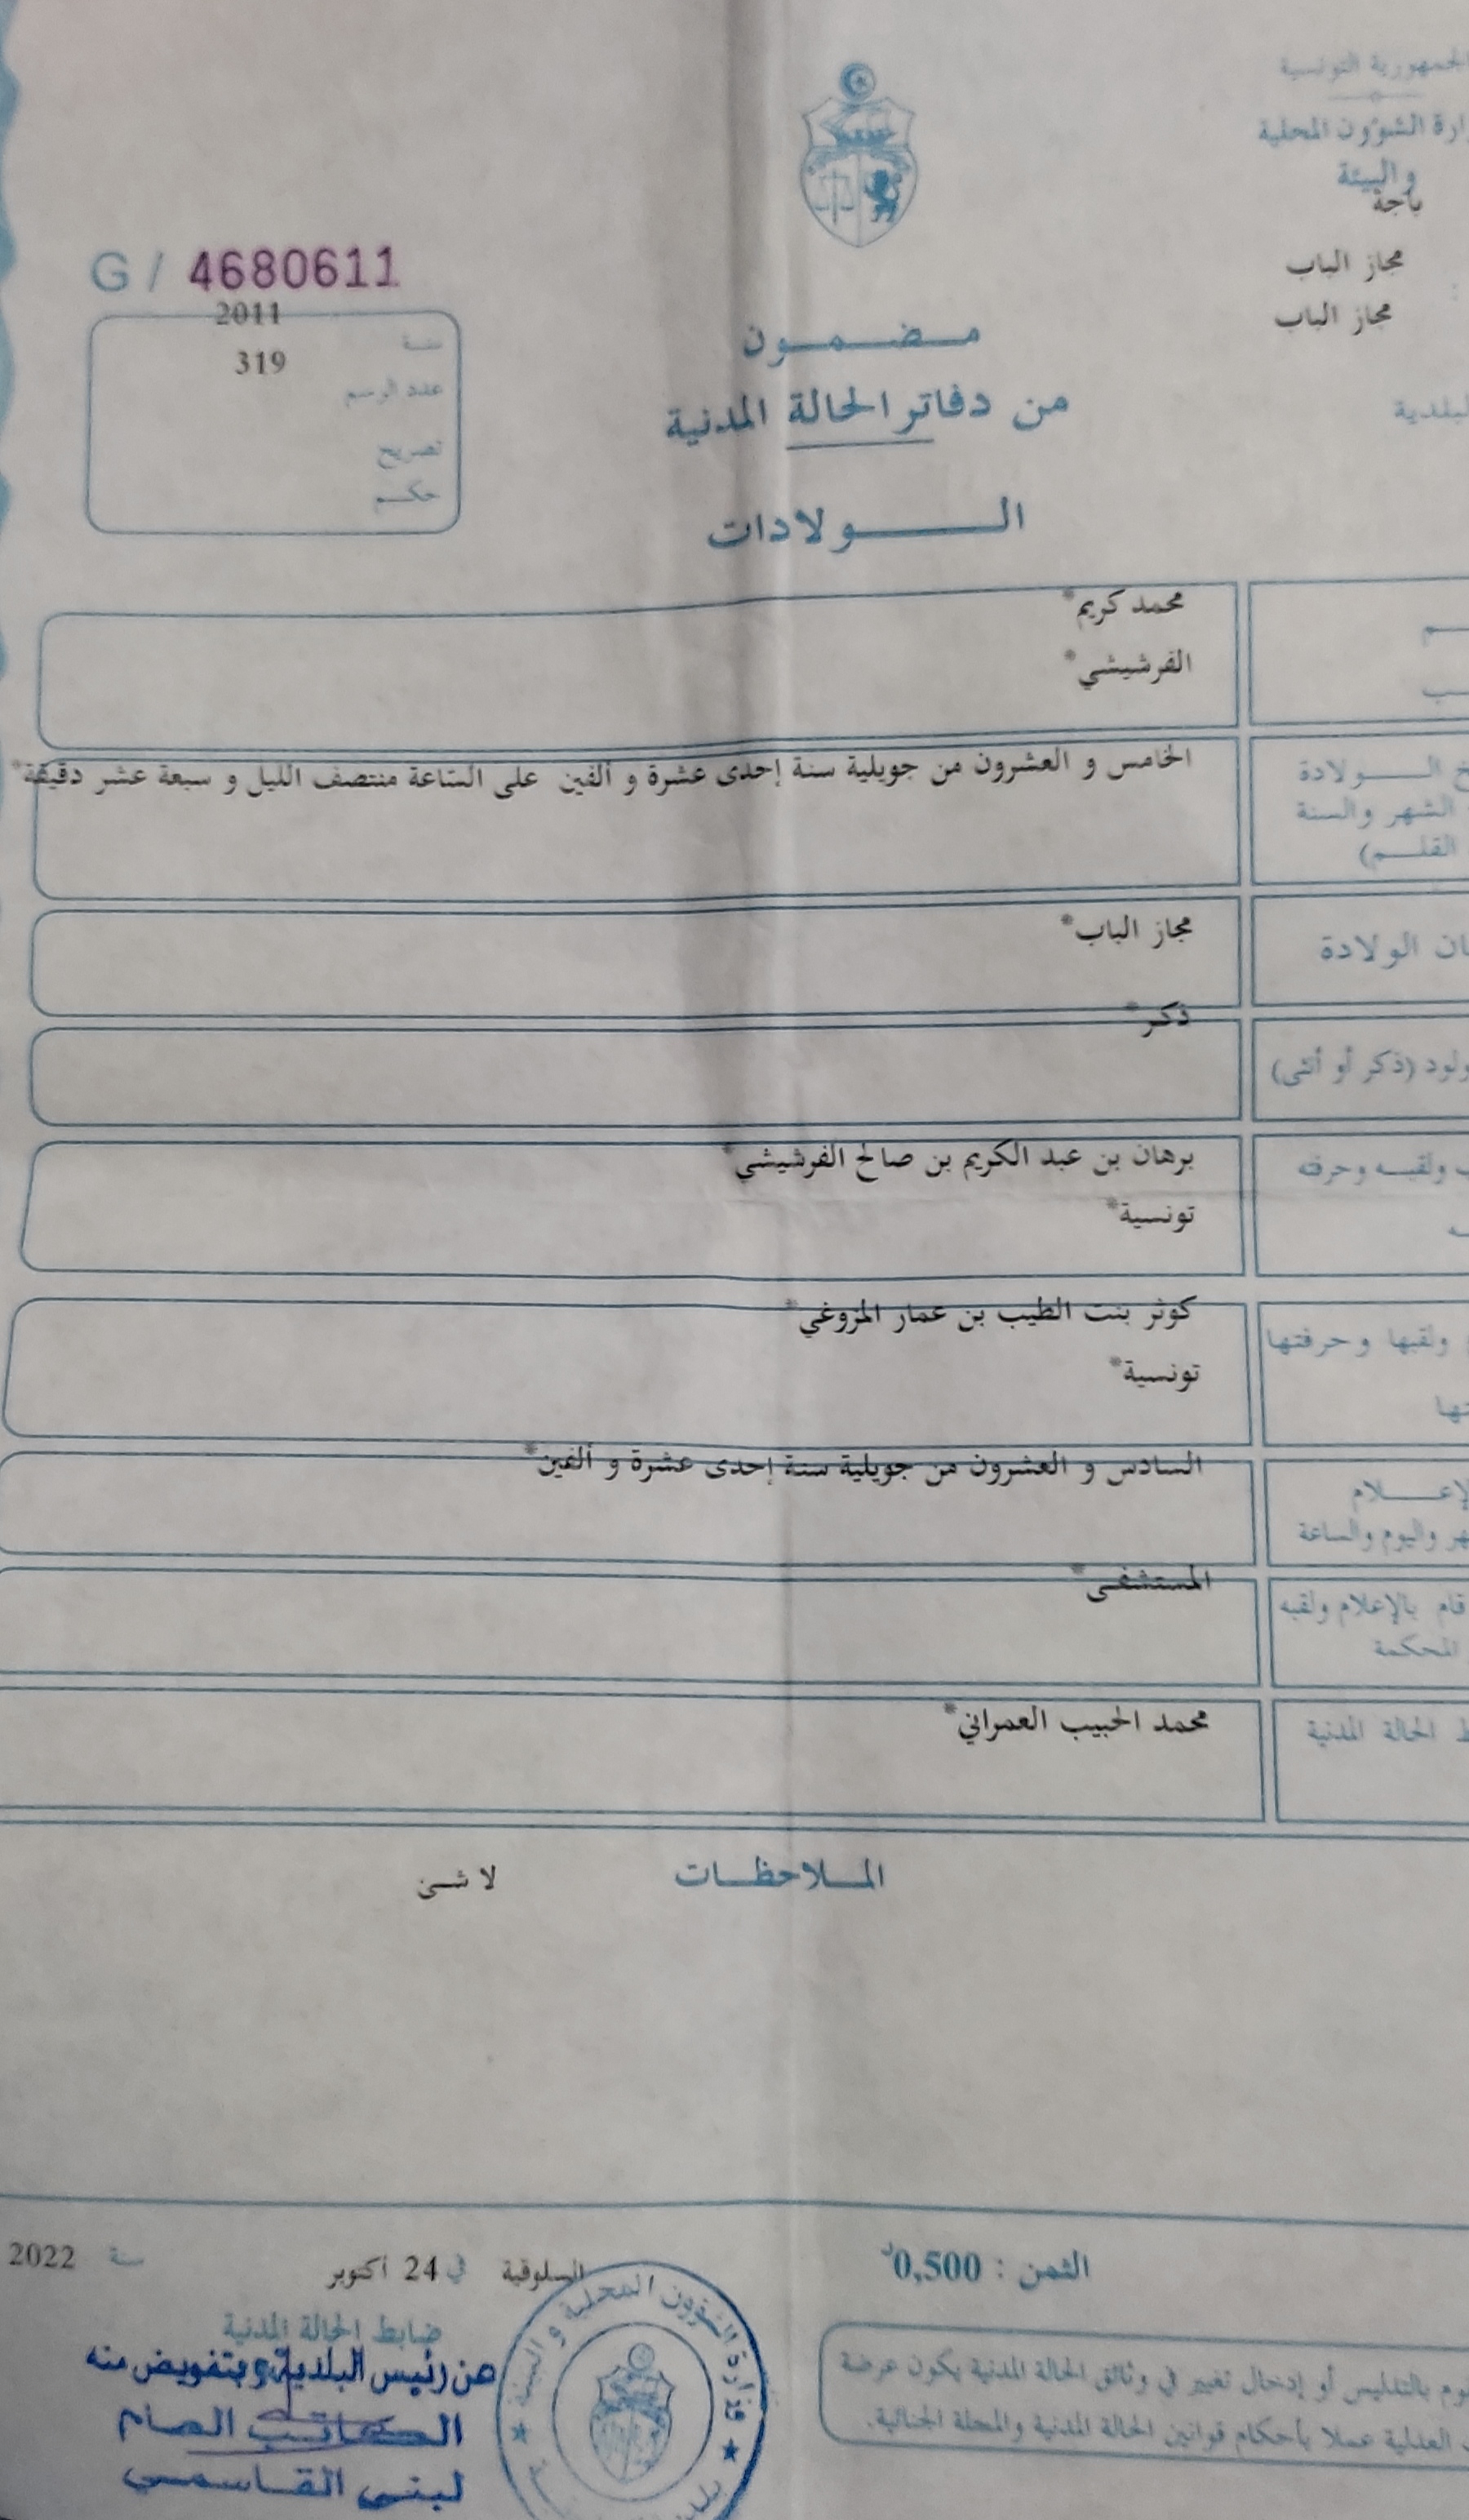 الجمهورية التونسية
وزارة الشؤون المحلية
والبيئة
باجة
مجاز الباب
مجاز الباب
G / 4680611
2011
سنة
319
عدد الرسم
تصريح
حكم
مضمون
من دفاتر الحالة المدنية
الولادات
محمد كريم*
الفرشيشي*
الخامس و العشرون من جويلية سنة إحدى عشرة و ألفين على الساعة منتصف الليل و سبعة عشر دقيقة*
الولادة
الشهر والسنة
القلم)
مجاز الباب*
الولادة
ذكر*
(ذكر أو أنثى)
برهان بن عبد الكريم بن صالح الفرشيشي*
ولقبه وحرفته
تونسية*
كوثر بنت الطيب بن عمار المزوغي*
ولقبها وحرفتها
تونسية*
السادس و العشرون من جويلية سنة إحدى عشرة و ألفين*
الإعلام
واليوم والساعة
المستشفى*
قام بالإعلام ولقبه
المحكمة
محمد الحبيب العمراني*
الحالة المدنية
الملاحظات لا شئ
الثمن : 0,500د
السلوقية في 24 أكتوبر سنة 2022
ضابط الحالة المدنية
عن رئيس البلدية وبتفويض منه
الكاتب العام
لبنى القاسمي
وزارة الشؤون المحلية و البيئة
بالتدليس أو إدخال تغيير في وثائق الحالة المدنية يكون عرضة
العدلية عملا بأحكام قوانين الحالة المدنية والمجلة الجنائية.